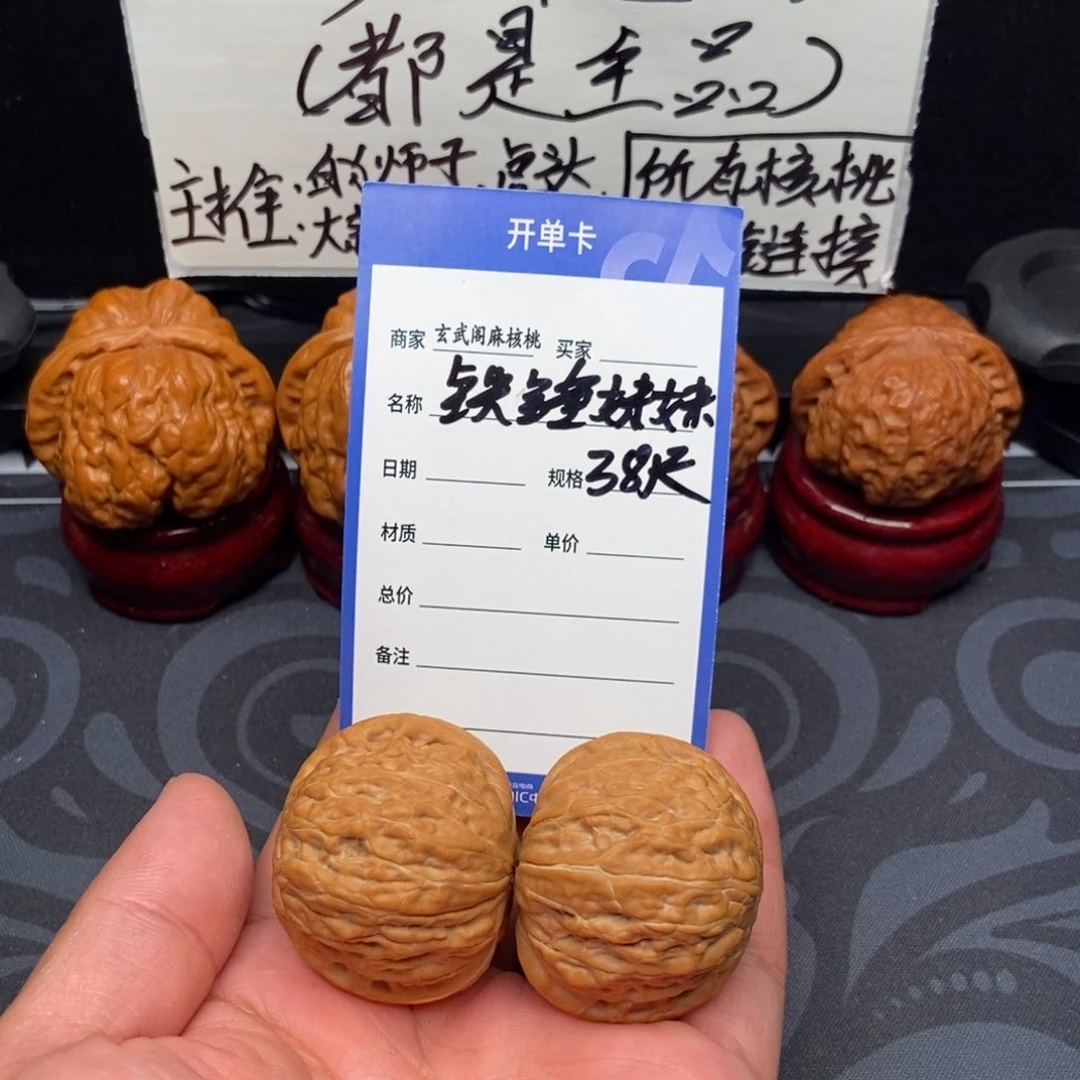 (都是全品)
主推:白狮子、点头、所有核桃
大 链接
开单卡
商家 玄武阁麻核桃 买家
名称 铁锤妹妹
日期 规格 38尺
材质 单价
总价
备注